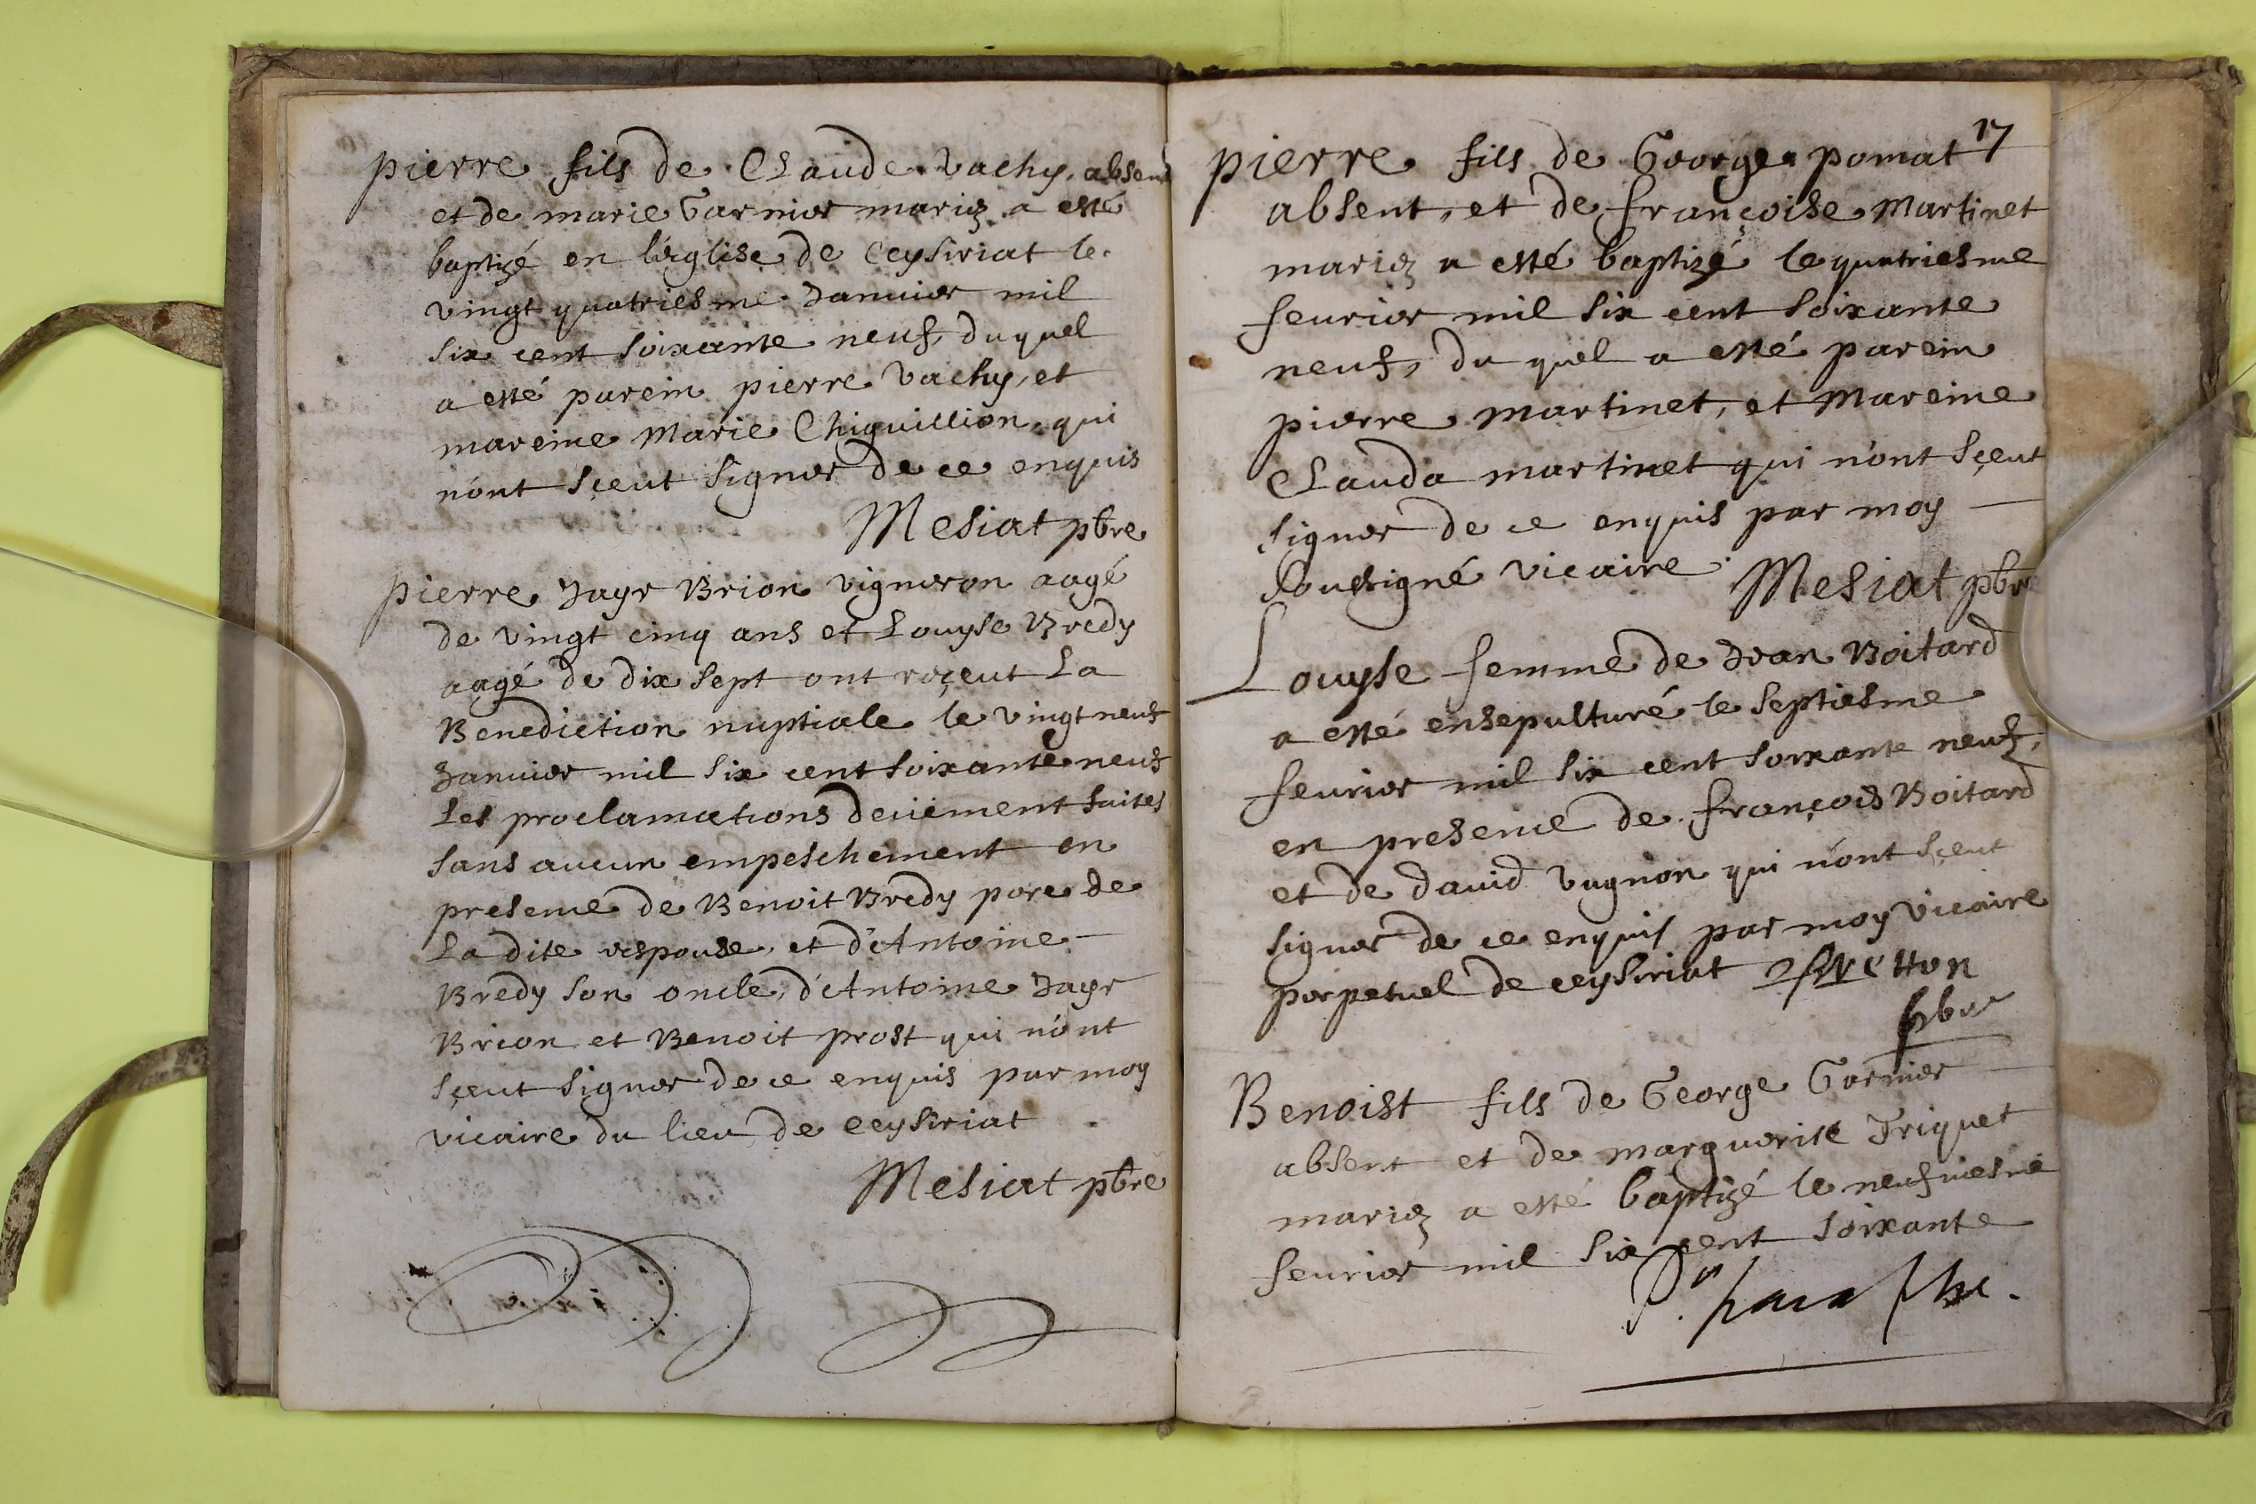 pierre fils de Claude vachy, absent
et de marie Garnier mariez a esté
baptizé en l'église de Ceysiriat le
vingt quatriesme Januier mil
six cent soixante neuf, duquel
a esté parein pierre vachy, et
mareine Marie Chiquillion, qui
n'ont sçeut signer de ce enquis
Mesiat pbre
pierre Jayr Brion vigneron aagé
de vingt cinq ans et Louyse Bredy
aagé de dix sept ont reçeut La
Benediction nuptiale le vingt neuf
Januier mil six cent soixante neuf
Les proclamations deüement faites
sans aucun empeschement en
presence de Benoit Bredy pere de
La dite espouse, et d'Antoine
Bredy son oncle, d'Antoine Jayr
Brion et Benoit prost qui n'ont
sçeut signer de ce enquis par moy
vicaire du lieu de ceysiriat
Mesiat pbre
17
pierre fils de George pomat
absent, et de françoise Martinet
mariez a esté baptizé le quatriesme
feurier mil six cent soixante
neuf, du quel a esté parein
pierre martinet, et Mareine
Clauda martinet qui n'ont sçeut
signer de ce enquis par moy
soussigné vicaire. Mesiat pbre
Louyse femme de Jean Boitard
a esté ensepulturé le septiesme
feurier mil six cent soixante neuf,
en presence de françois Boitard
et de dauid vugnon qui n'ont sçeut
signer de ce enquis par moy vicaire
perpetuel de ceysiriat
pbre
Benoist fils de George Garnier
absent et de marguerite Triquet
mariez a esté baptizé le neufuiesme
feurier mil six cent soixante